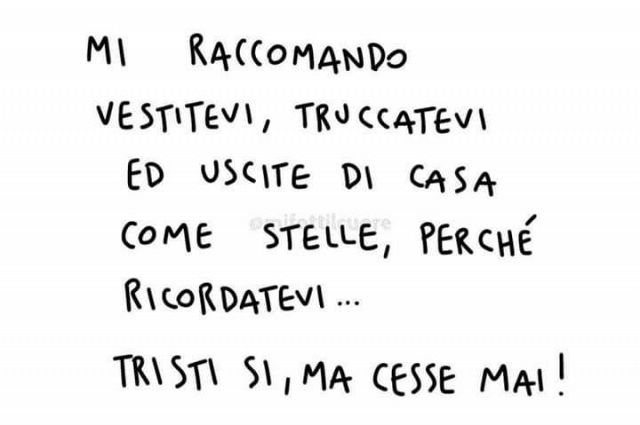 MI RACCOMANDO
VESTITEVI, TRUCCATEVI
ED USCITE DI CASA
COME STELLE, PERCHÉ
RICORDATEVI...
TRISTI SI, MA CESSE MAI!